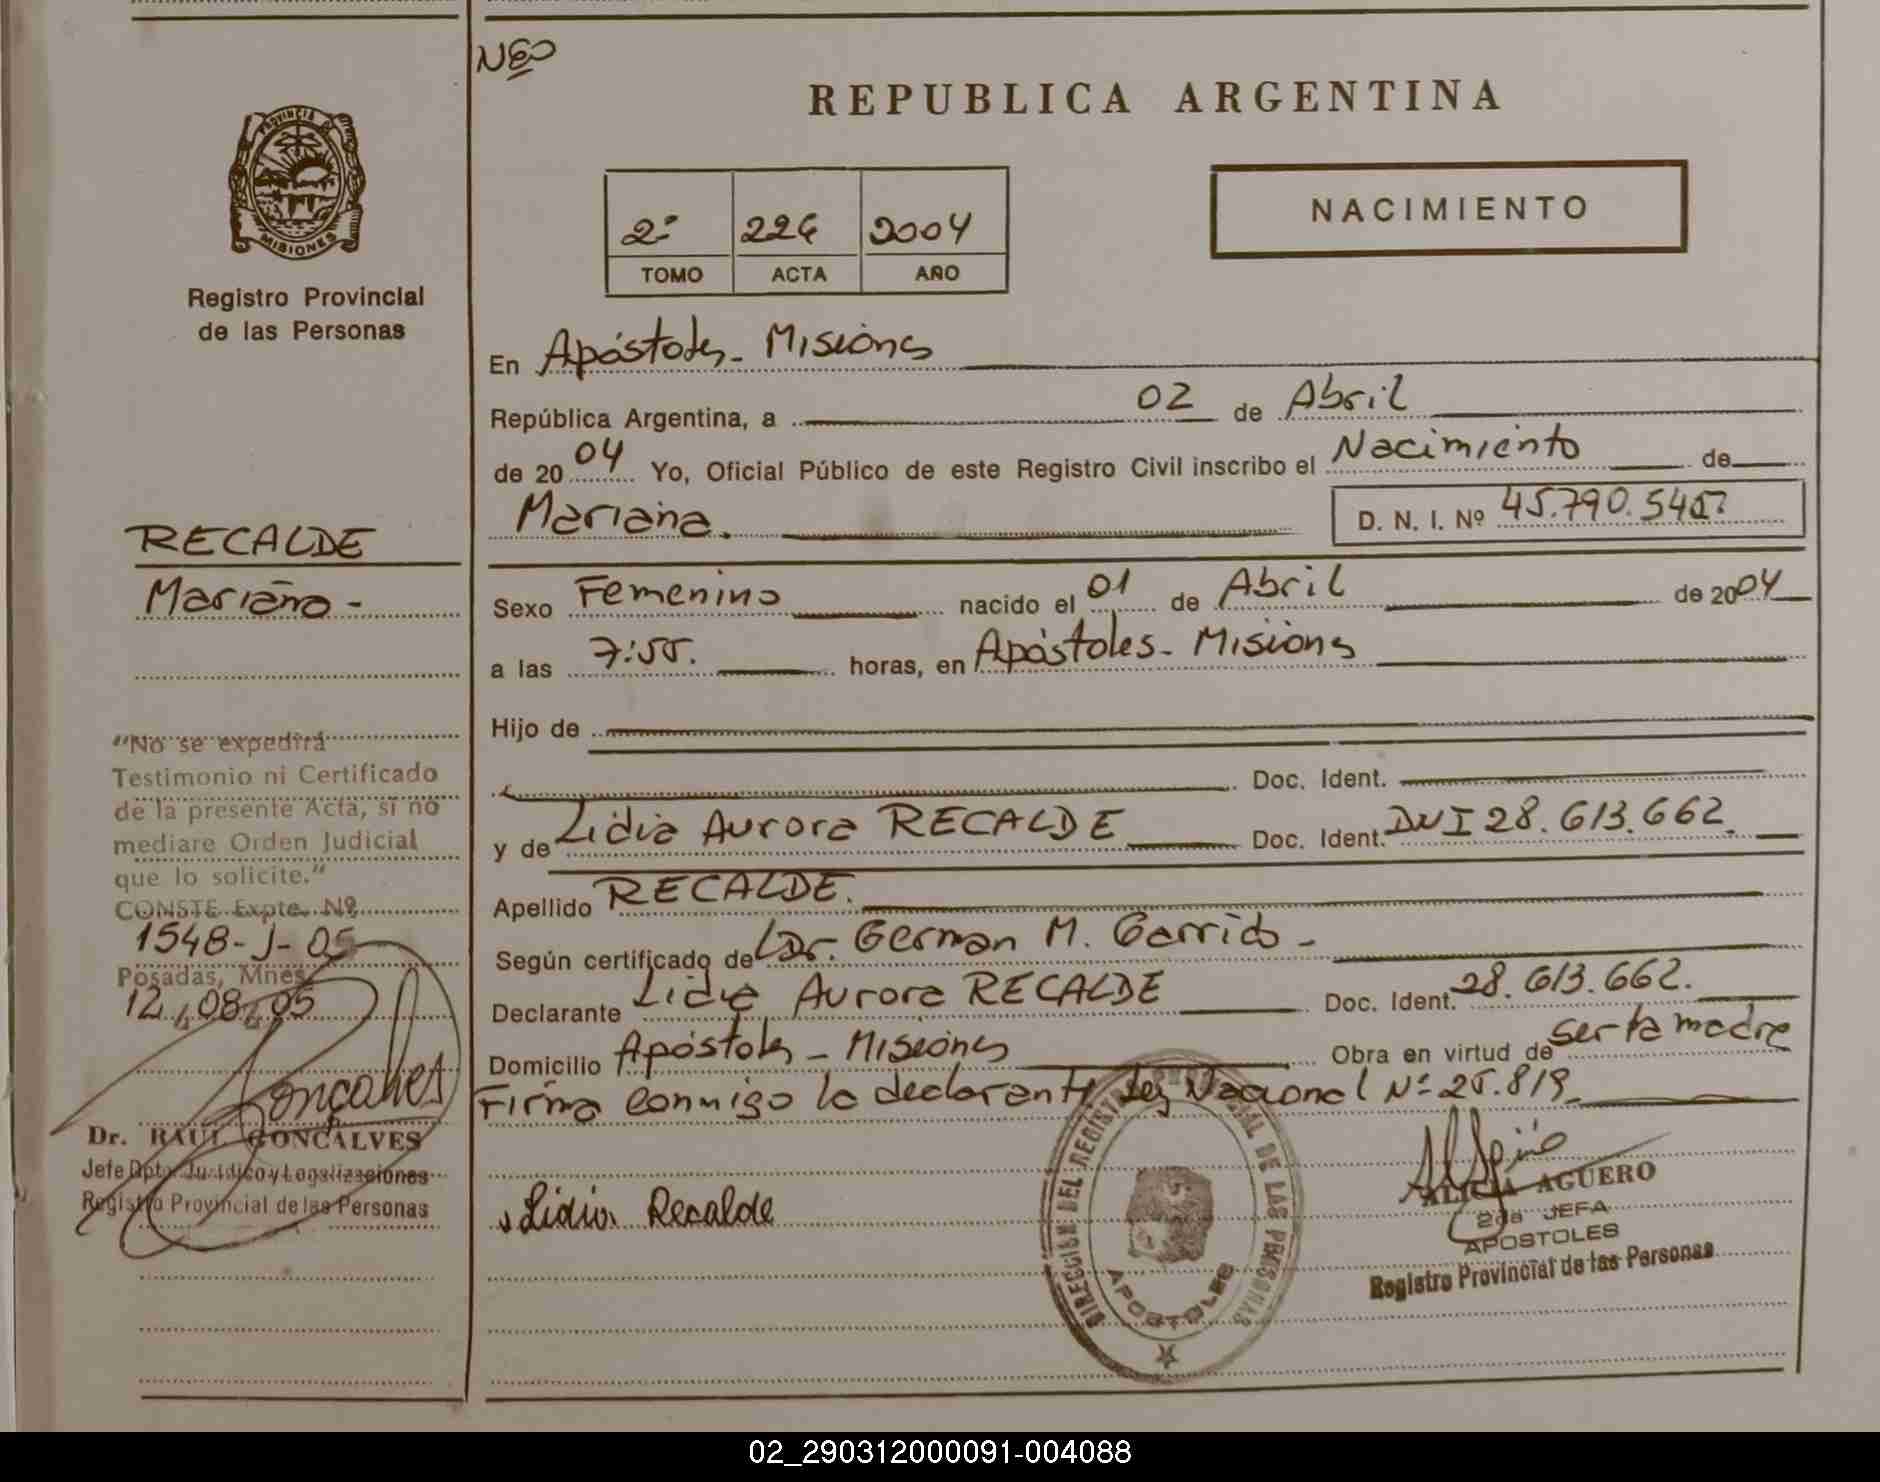 NEO
REPUBLICA ARGENTINA
PROVINCIA DE
MISIONES
Registro Provincial
de las Personas
2º 226 2004
TOMO ACTA AÑO
NACIMIENTO
En Apóstoles - Misiones
República Argentina, a 02 de Abril
de 2004 Yo, Oficial Público de este Registro Civil inscribo el Nacimiento de
Mariana. D. N. I. Nº 45.790.545
RECALDE
Mariana -
Sexo Femenino nacido el 01 de Abril de 2004
a las 7:55. horas, en Apóstoles - Misiones
Hijo de
Doc. Ident.
y de Lidia Aurora RECALDE Doc. Ident. DNI 28.613.662.
Apellido RECALDE.
Según certificado de Dr. German M. Garrido -
Declarante Lidia Aurora RECALDE Doc. Ident. 28.613.662.
Domicilio Apóstoles - Misiones Obra en virtud de ser la madre
Firma conmigo la declarante Ley Nacional Nº 25.819.
"No se expedirá
Testimonio ni Certificado
de la presente Acta, si no
mediare Orden Judicial
que lo solicite."
CONSTE Expte. Nº
1548-J-05
Posadas, Mnes
12,08,05
Gonçalves
Dr. RAUL GONÇALVES
Jefe Dpto. Jurídico y Legalizaciones
Registro Provincial de las Personas
Lidia Recalde
DIRECCION DEL REGISTRO PROVINCIAL DE LAS PERSONAS
APOSTOLES
ALICIA AGUERO
2da JEFA
APOSTOLES
Registro Provincial de las Personas
02_290312000091-004088